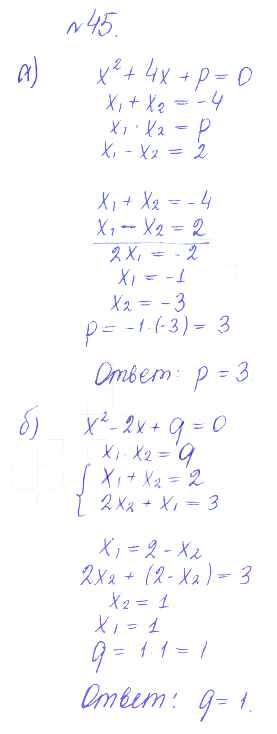 №45.
а) x² + 4x + p = 0
x₁ + x₂ = -4
x₁ · x₂ = p
x₁ - x₂ = 2
x₁ + x₂ = -4
x₁ - x₂ = 2
2x₁ = -2
x₁ = -1
x₂ = -3
p = -1·(-3) = 3
Ответ: p = 3
б) x² - 2x + q = 0
x₁ · x₂ = q
{ x₁ + x₂ = 2
2x₂ + x₁ = 3
x₁ = 2 - x₂
2x₂ + (2 - x₂) = 3
x₂ = 1
x₁ = 1
q = 1·1 = 1
Ответ: q = 1.